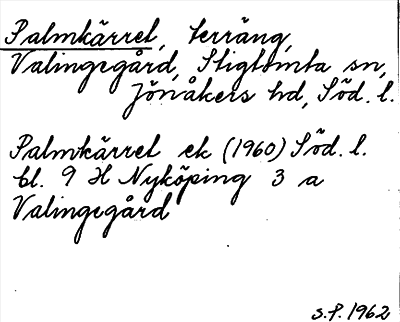 Palmkärret, terräng,
Valingegård, Stigtomta sn,
Jönåkers hd, Söd. l.
Palmkärret ek (1960) Söd. l.
bl. 9 H Nyköping 3 a
Valingegård
S.P. 1962